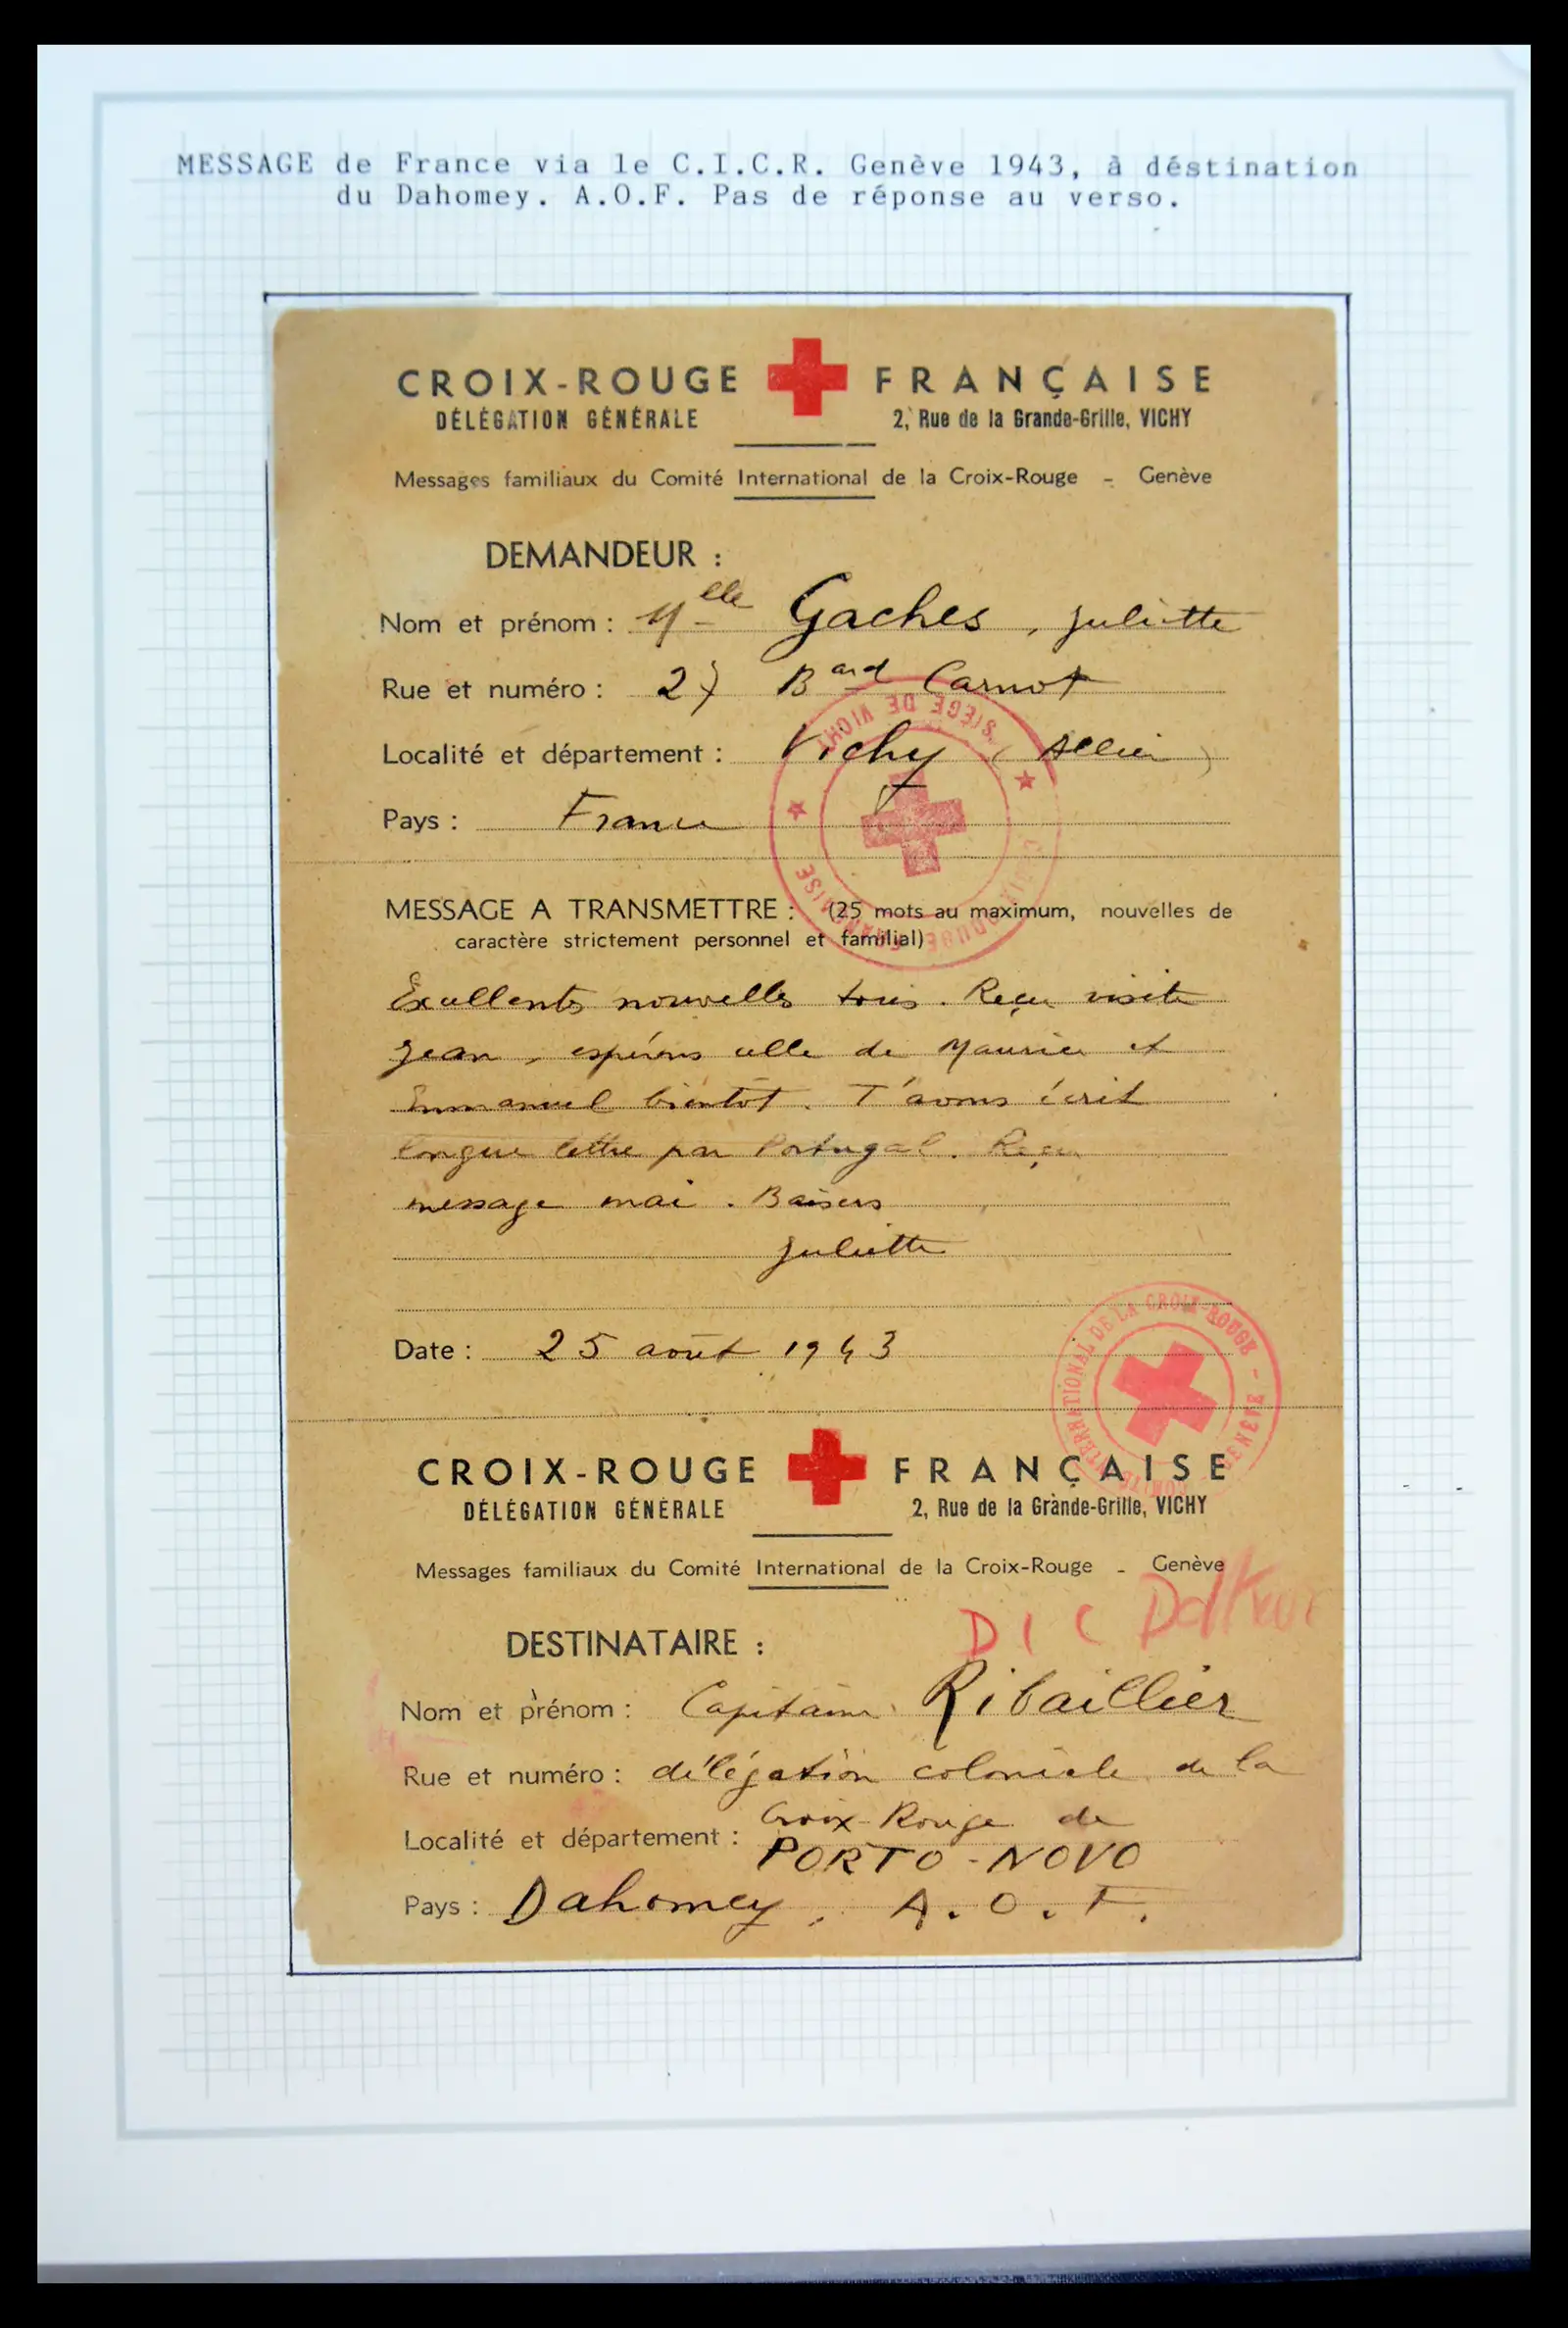 MESSAGE de France via le C.I.C.R. Genève 1943, à déstination
du Dahomey. A.O.F. Pas de réponse au verso.
CROIX-ROUGE FRANÇAISE
DÉLÉGATION GÉNÉRALE 2, Rue de la Grande-Grille, VICHY
Messages familiaux du Comité International de la Croix-Rouge - Genève
DEMANDEUR :
Nom et prénom : Melle Gaches, Juliette
Rue et numéro : 27 Bard Carnot
Localité et département : Vichy (Allier)
Pays : France
SIÈGE DE VICHY
CROIX ROUGE FRANÇAISE
MESSAGE A TRANSMETTRE : (25 mots au maximum, nouvelles de
caractère strictement personnel et familial)
Excellentes nouvelles tous. Reçu visite
Jean, espérons celle de Maurice et
Emmanuel bientôt. T'avons écrit
longue lettre par Portugal. Reçu
message mai. Baisers
Juliette
Date : 25 août 1943
COMITÉ INTERNATIONAL DE LA CROIX-ROUGE - GENÈVE
CROIX-ROUGE FRANÇAISE
DÉLÉGATION GÉNÉRALE 2, Rue de la Grande-Grille, VICHY
Messages familiaux du Comité International de la Croix-Rouge - Genève
DIC
DESTINATAIRE :
Nom et prénom : Capitaine Ribaillier
Rue et numéro : délégation coloniale de la
Croix-Rouge de
Localité et département : PORTO-NOVO
Pays : Dahomey. A.O.F.